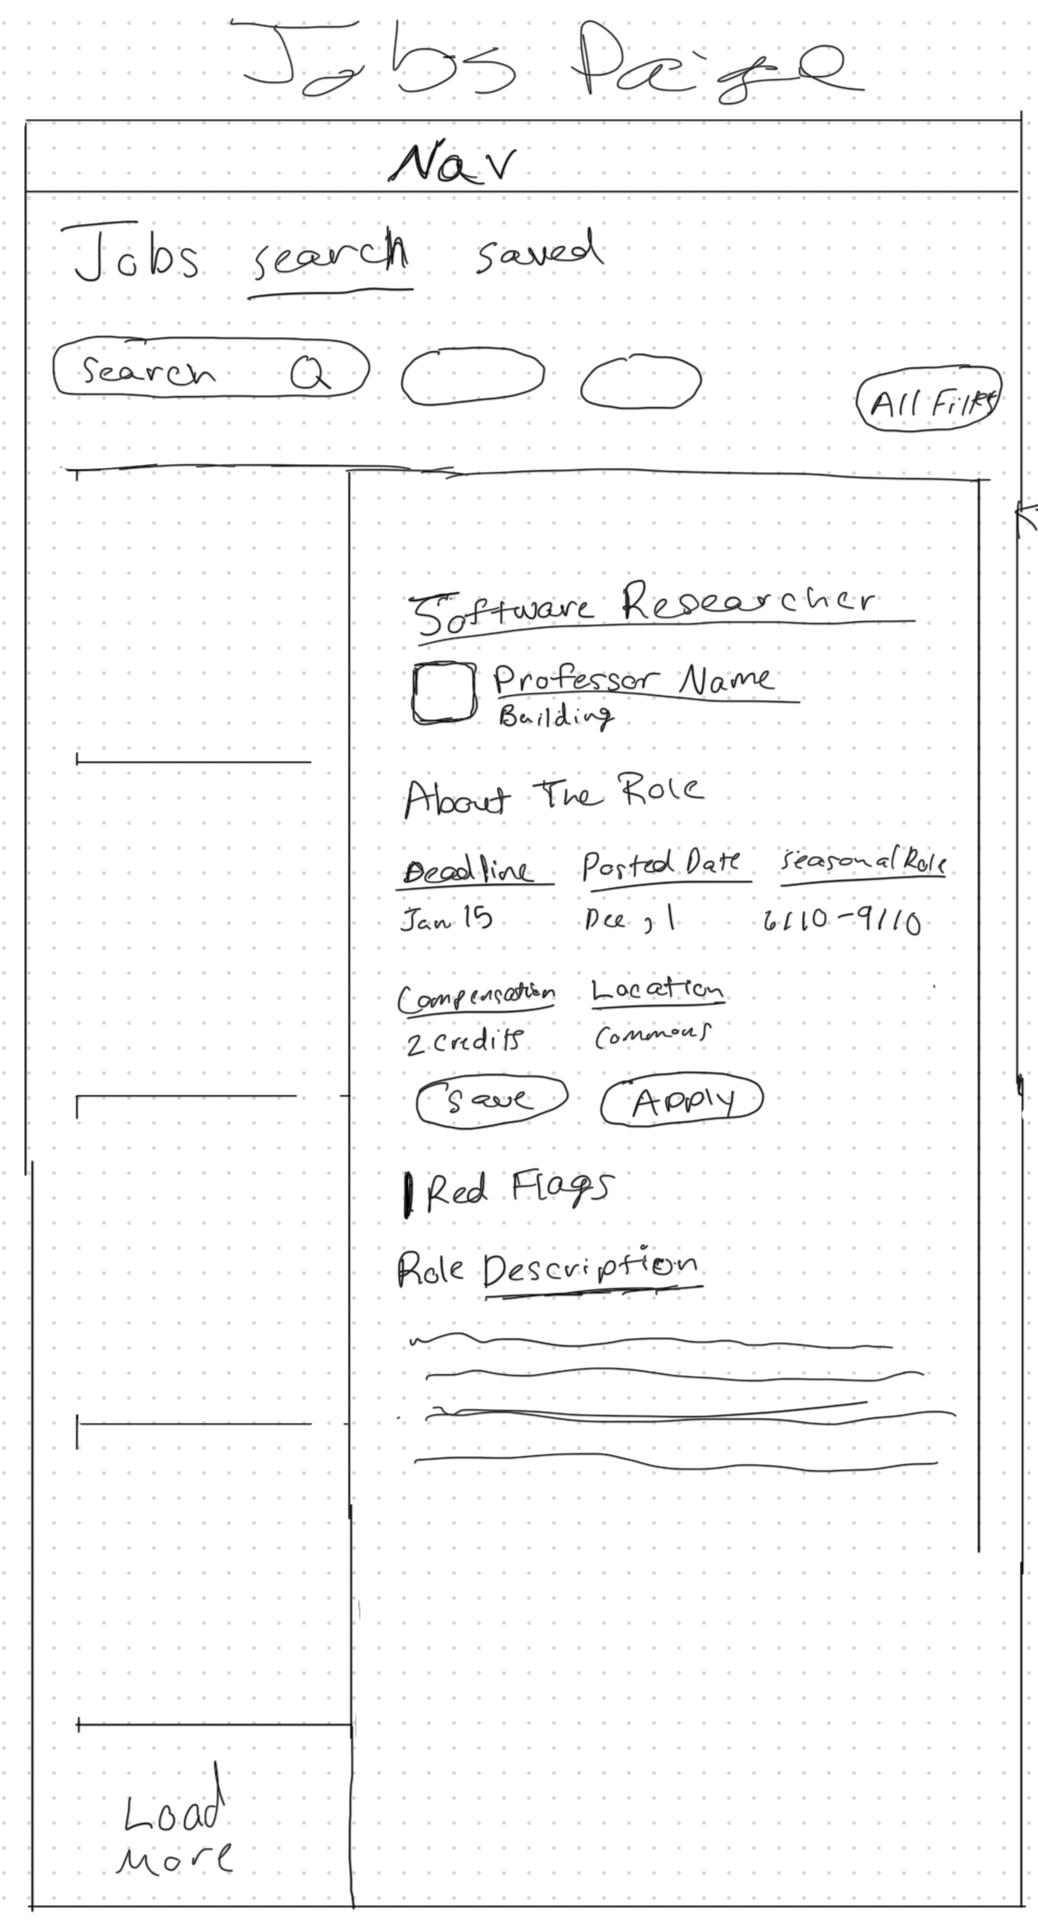 Jobs Paige
Nav
Jobs search saved
Search
All Filtrs
Software Researcher
Professor Name
Building
About The Role
Deadline Posted Date Seasonal Role
Jan 15 Dec, 1 6/10-9/10
Compensation Location
2 credits Commons
Save Apply
Red Flags
Role Description
Load
More